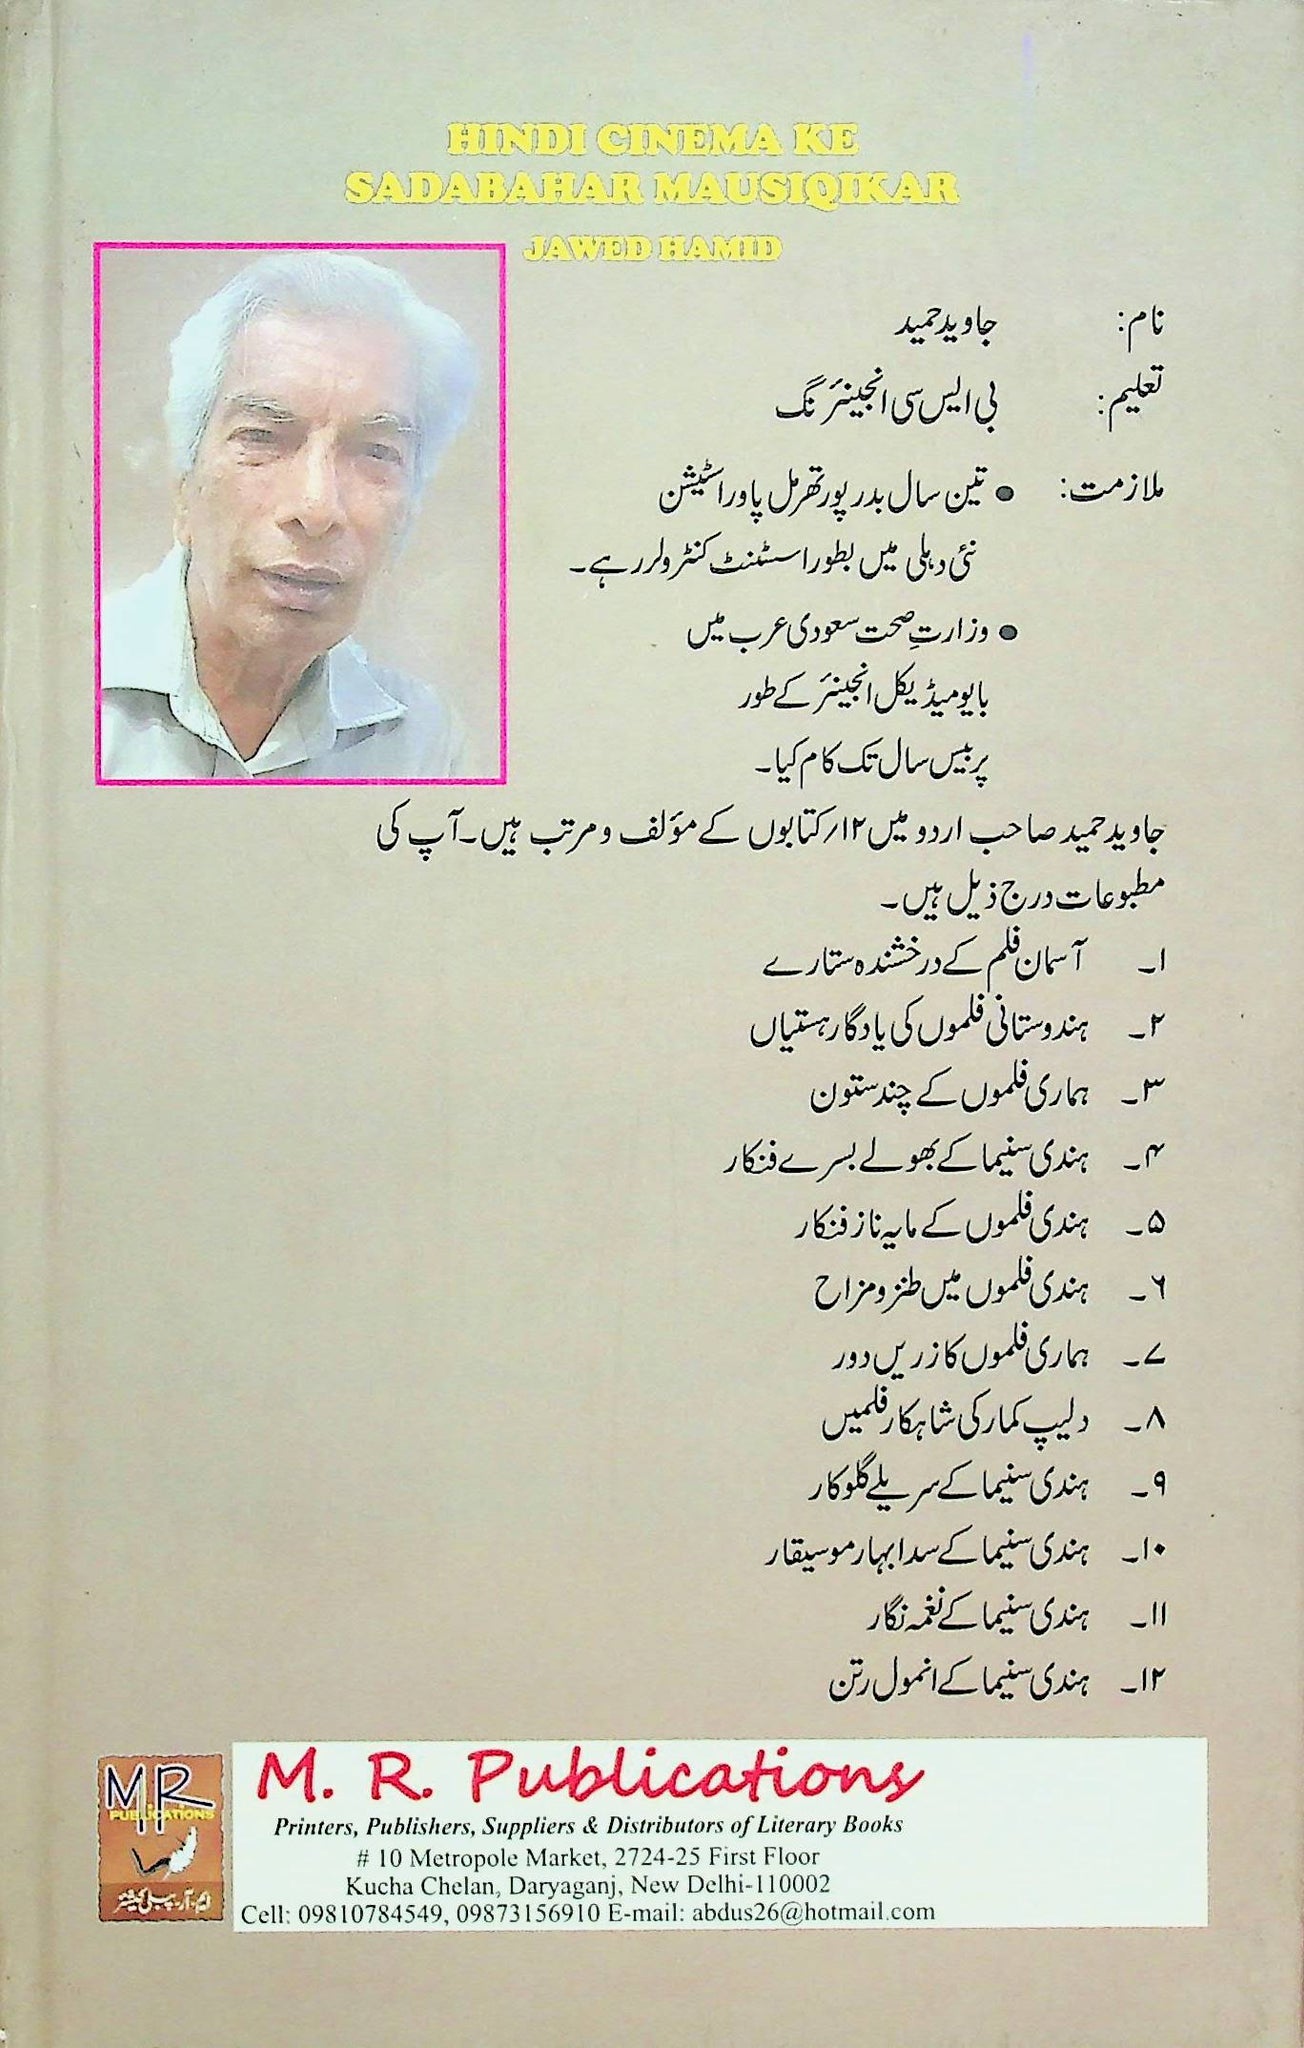 HINDI CINEMA KE
SADABAHAR MAUSIQIKAR
JAWED HAMID
نام: جاوید حمید
تعلیم: بی ایس سی انجینئرنگ
ملازمت: ● تین سال بدرپور تھرمل پاور اسٹیشن
نئی دہلی میں بطور اسسٹنٹ کنٹرولر رہے۔
● وزارتِ صحت سعودی عرب میں
بایومیڈیکل انجینئر کے طور
پر بیس سال تک کام کیا۔
جاوید حمید صاحب اردو میں ۱۲؍کتابوں کے مؤلف و مرتب ہیں۔ آپ کی
مطبوعات درج ذیل ہیں۔
۱۔ آسمان فلم کے درخشندہ ستارے
۲۔ ہندوستانی فلموں کی یادگار ہستیاں
۳۔ ہماری فلموں کے چند ستون
۴۔ ہندی سنیما کے بھولے بسرے فنکار
۵۔ ہندی فلموں کے مایہ ناز فنکار
۶۔ ہندی فلموں میں طنز و مزاح
۷۔ ہماری فلموں کا زریں دور
۸۔ دلیپ کمار کی شاہکار فلمیں
۹۔ ہندی سنیما کے سریلے گلوکار
۱۰۔ ہندی سنیما کے سدا بہار موسیقار
۱۱۔ ہندی سنیما کے نغمہ نگار
۱۲۔ ہندی سنیما کے انمول رتن
MR
PUBLICATIONS
ایم۔آر۔پبلی کیشنز
M. R. Publications
Printers, Publishers, Suppliers & Distributors of Literary Books
# 10 Metropole Market, 2724-25 First Floor
Kucha Chelan, Daryaganj, New Delhi-110002
Cell: 09810784549, 09873156910 E-mail: abdus26@hotmail.com